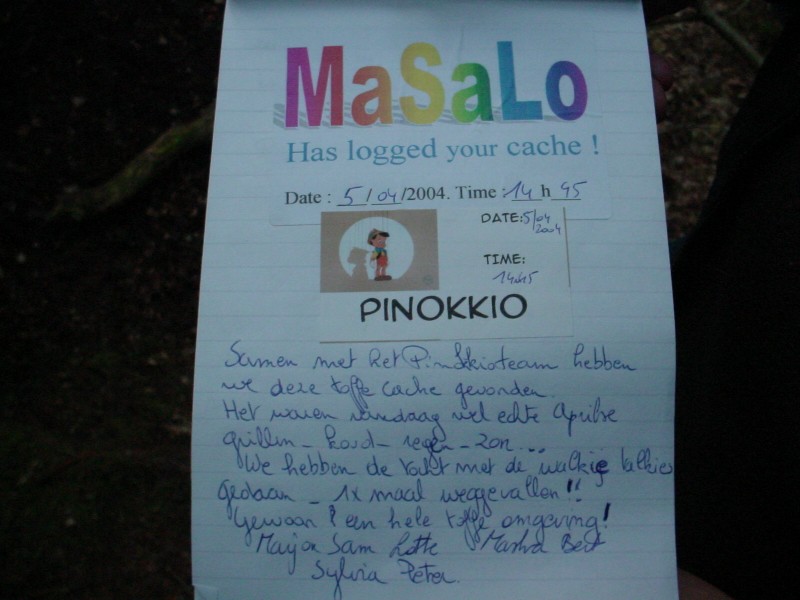 MaSaLo
Has logged your cache !
Date : 5/04/2004. Time :14 h 45
DATE: 5/04 2004
TIME:
PINOKKIO
Samen met het Pinokkioteam hebben
we deze toffe cache gevonden.
Het waren vandaag wel echte Aprilse
grillen - koud - regen - zon...
We hebben de tocht met de walkie talkies
gedaan - 1x maal weggevallen!!
Gewoon een hele toffe omgeving!
Marjon Sam Lotte Masha Bert
Sylvia Peter.